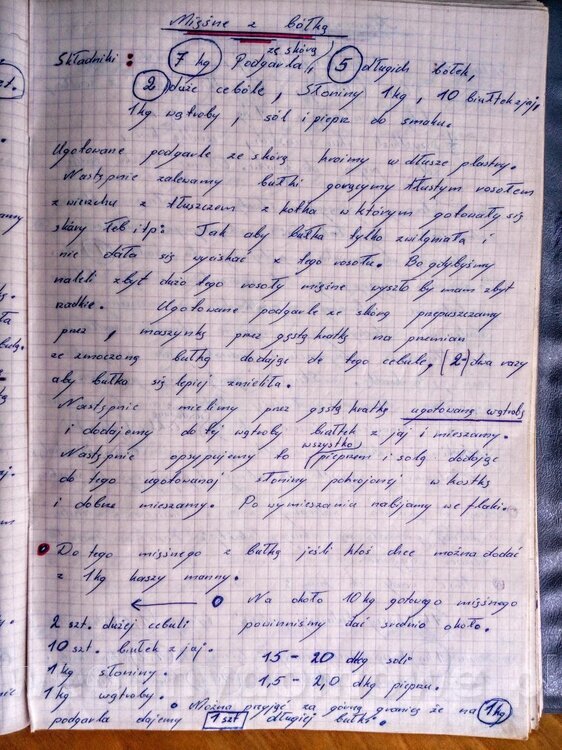 Mięsne z bółką
Składniki: 7 kg Podgarla, ze skórą 5 długich bółek,
2 duże cebóle, Słoniny 1kg, 10 białtek z jaj,
1kg wątroby, sól i pieprz do smaku.
Ugotowane podgarle ze skórą kroimy w dłusze plastry.
Następnie zalewamy bułki gorącymy tłustym rosołem
z wierzchu z tłuszczem z kotka w którym gotowały się
skóry łeb itp: Tak aby bułka tylko zwilgniała i
nie dała się wyciskać z tego rosołu. Bo gdybyśmy
naleli zbyt dużo tego rosoły mięsne wyszło by mam zbyt
rzadkie. Ugotowane podgarle ze skórą przepuszczamy
przez, maszynkę przez gęstą kratkę na przemian
ze zmoczoną bułką dodając do tego cebule, (2-) dwa razy
aby bułka się lepiej zmieliła.
Następnie mielimy przez gęstą kratkę ugotowaną wątrobę
i dodajemy do tej wątroby białtek z jaj i mieszamy.
Następnie opsypujemy to wszystko pieprzem i solą dodając
do tego ugotowanej słoniny pokrojonej w kostkę
i dobrze mieszamy. Po wymieszaniu nabijamy we flaki.
Do tego mięsnego z bułką jeśli ktoś chce można dodać
z 1kg kaszy manny.
Na około 10kg gotowego mięsnego
2 szt. dużej cebuli powinniśmy dać średnio około.
10 szt. białek z jaj. 15 - 20 dkg soli
1 kg słoniny. 1,5 - 2,0 dkg pieprzu.
1 kg wątroby. Można przyjąć za górną granicę że na 1kg
podgarla dajemy 1 szt długiej bułki.